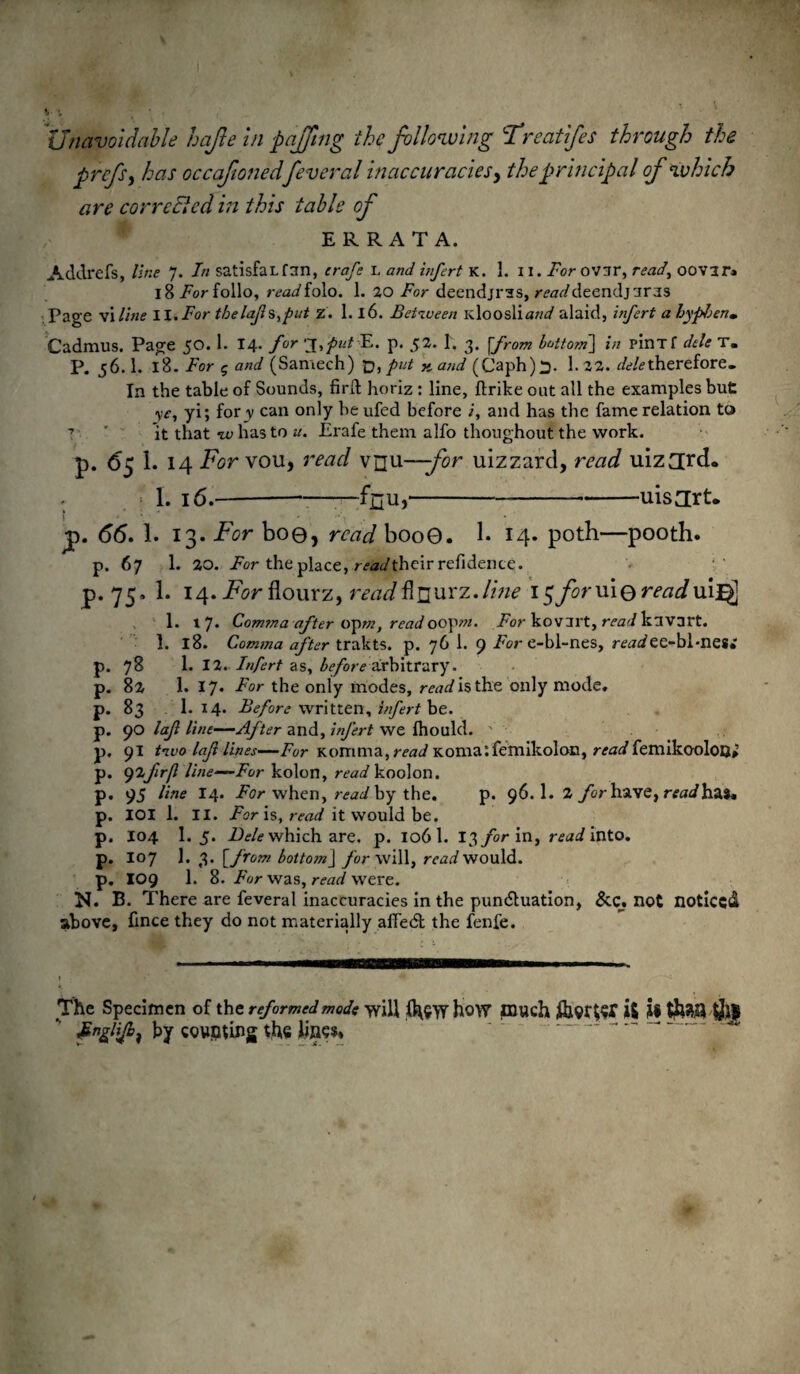 Unavoidable haſte in paſſing the following Treatiſes through the
preſs, has occaſioned ſeveral inaccuracies, the principal of which
are corrected in this table of
ERRATA.
Addreſs, line 7. In satisfaʟſɜn, eraſe ʟ and inſert ᴋ. l. 11. For ovɜr, read, oovɜr.
18 For follo, read folo. l. 20 For deendjrɜs, read deendjɜrɜs
Page vi line 11. For the laſt s, put z. l. 16. Between ᴋloosli and alaid, inſert a hyphen.
Cadmus. Page 50. l. 14. for ʒ, put E. p. 52. l. 3. [from bottom] in pinᴛſ dele ᴛ.
P. 56. l. 18. For ς and (Samech) ס, put ϰ and (Caph) כ. l. 22. dele therefore.
In the table of Sounds, firſt horiz : line, ſtrike out all the examples but
ye, yi; for y can only be uſed before i, and has the ſame relation to
it that w has to u. Eraſe them alſo thoughout the work.
p. 65 l. 14 For vou, read vꞃu—for uizzard, read uizꞮrd.
l. 16. fꞃu, uisꞮrt.
p. 66. l. 13. For boꙨ, read booꙨ. l. 14. poth—pooth.
p. 67 l. 20. For the place, read their reſidence.
p. 75. l. 14. For flourz, read flꞃurz. line 15 for uiꙨ read
l. 17. Comma after opm, read oopm. For kovɜrt, read kɜvɜrt.
l. 18. Comma after trakts. p. 76 l. 9 For e-bl-nes, read ee-bl-nes;
p. 78 l. 12. Inſert as, before arbitrary.
p. 82 l. 17. For the only modes, read is the only mode.
p. 83 l. 14. Before written, inſert be.
p. 90 laſt line—After and, inſert we ſhould.
p. 91 two laſt lines—For ᴋomma, read ᴋoma: ſemikolon, read ſemikooloꞃ;
p. 92 firſt line—For kolon, read koolon.
p. 95 line 14. For when, read by the. p. 96. l. 2 for have, read has.
p. 101 l. 11. For is, read it would be.
p. 104 l. 5. Dele which are. p. 106 l. 13 for in, read into.
p. 107 l. 3. [from bottom] for will, read would.
p. 109 l. 8. For was, read were.
N. B. There are ſeveral inaccuracies in the punctuation, &c. not noticed
above, ſince they do not materially affect the ſenſe.
The Specimen of the reformed mode will ſhew how much ſhorter it is than the
Engliſh, by counting the lines.